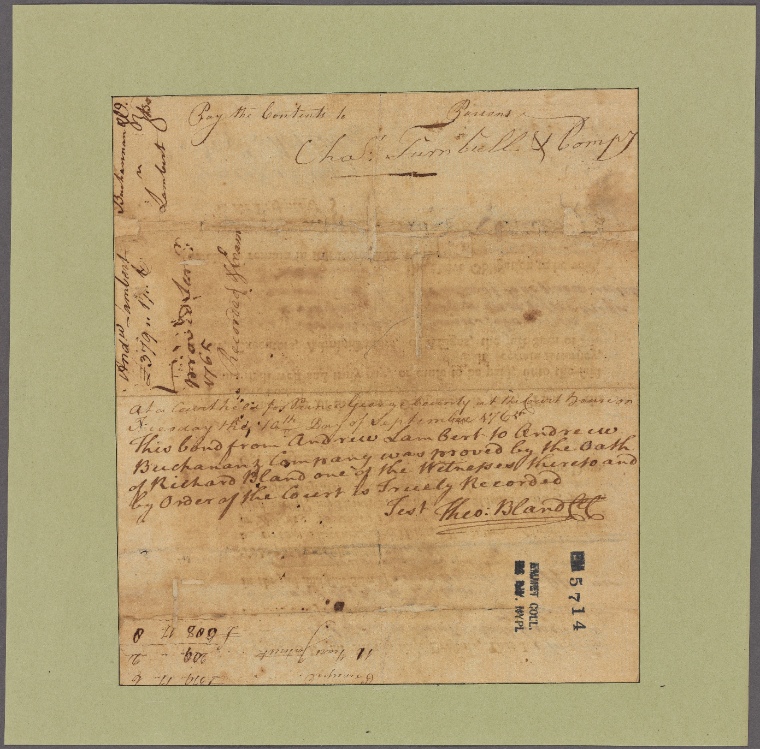 Pay the Contents to
Chas. Turnbull & Compy
Buchannan &
Lambert
Andw Lambert
£379 " 17 "
proved Sepr
1765
Recorded & Exam
At a Court held for Prince George County at the Court House on
Tuesday the 10th Day of September 1765
This bond from Andrew Lambert to Andrew
Buchanan & Company was proved by the Oath
of Richard Bland one of the Witnesses thereto and
by Order of the Court is Truely Recorded
Test Theo: Bland CC
EM 5714
EMMET COLL.
NYPL
Principal 379 17 6
11 Years Interest 2
£ 608 17 8